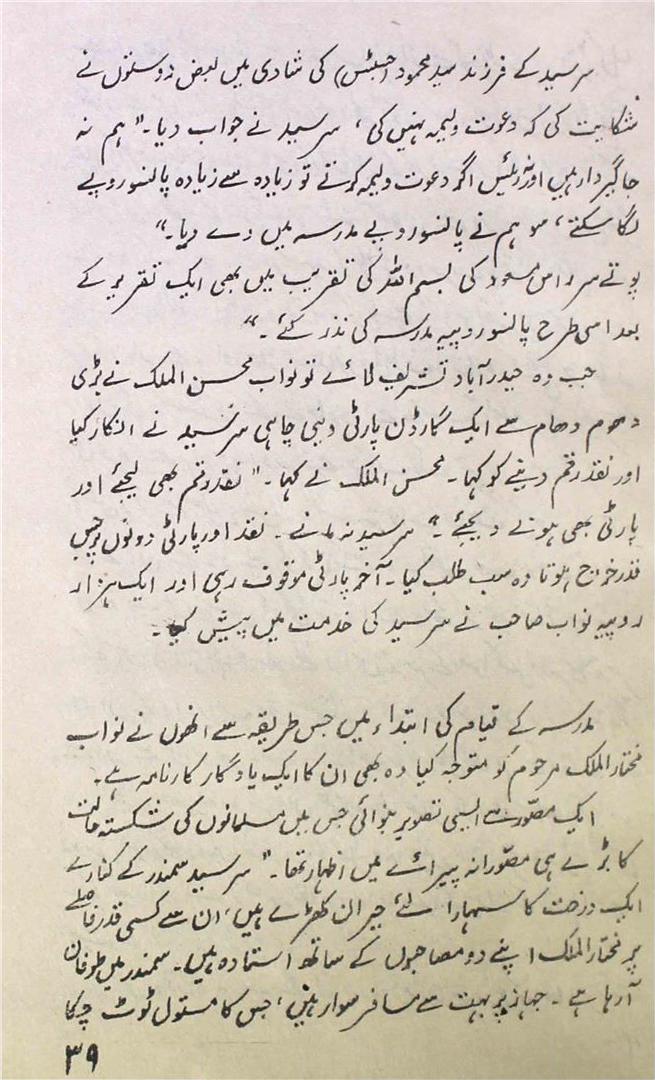 سرسید کے فرزند سید محمود (جسٹس) کی شادی میں بعض دوستوں نے
شکایت کی کہ دعوت ولیمہ نہیں کی، سرسید نے جواب دیا۔ "ہم نہ
جاگیردار ہیں اور نہ رئیس اگر دعوت ولیمہ کرتے تو زیادہ سے زیادہ پانسو روپے
لگا سکتے، سو ہم نے پانسو روپے مدرسہ میں دے دیا۔"
پوتے سر راس مسعود کی بسم اللہ کی تقریب میں بھی ایک تقریر کے
بعد اسی طرح پانسو روپیہ مدرسہ کی نذر کئے۔"
جب وہ حیدرآباد تشریف لائے تو نواب محسن الملک نے بڑی
دھوم دھام سے ایک گارڈن پارٹی دینی چاہی سرسید نے انکار کیا
اور نقد رقم دینے کو کہا۔ محسن الملک نے کہا۔ "نقد رقم بھی لیجئے اور
پارٹی بھی ہونے دیجئے۔" سرسید نہ مانے۔ نقد اور پارٹی دونوں پر جس
قدر خرچ ہوتا وہ سب طلب کیا۔ آخر پارٹی موقوف رہی اور ایک ہزار
روپیہ نواب صاحب نے سرسید کی خدمت میں پیش کیے۔
مدرسہ کے قیام کی ابتداء میں جس طریقہ سے انھوں نے نواب
مختار الملک مرحوم کو متوجہ کیا وہ بھی ان کا ایک یادگار کارنامہ ہے۔
ایک مصوّر سے ایسی تصویر بنوائی جس میں مسلمانوں کی شکستہ حالت
کا بڑے ہی مصوّرانہ پیرائے میں اظہار تھا۔ "سرسید سمندر کے کنارے
ایک درخت کا سہارا لئے حیران کھڑے ہیں، ان سے کسی قدر فاصلے
پر مختار الملک اپنے دو مصاحبوں کے ساتھ استادہ ہیں۔ سمندر میں طوفان
آرہا ہے۔ جہاز پر بہت سے مسافر سوار ہیں، جس کا مستول ٹوٹ چکا
۳۹